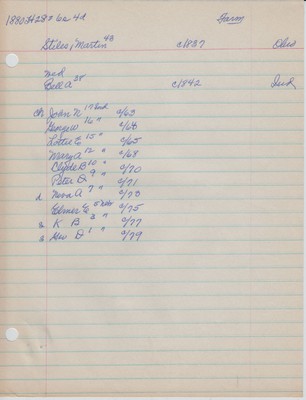 1880 H 28 = 6a 4d Farm
Stiles, Martin 43 c1837 Ohio
wid
Bell A 38 c1842 Ind
ch John N 17 Ind c/63
George W 16 " c/64
Lottie E 15 " c/65
Mary A 12 " c/68
Clyde B 10 " c/70
Peter D 9 " c/71
d Nova A 7 " c/73
Elmer E 5 Nebr c/75
s K B 3 " c/77
s Geo D 1 " c/79